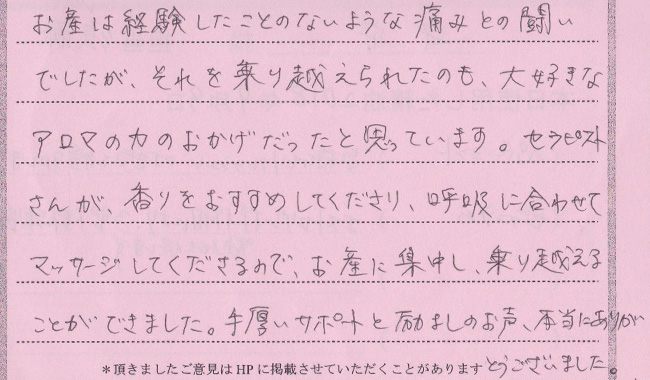 お産は経験したことのないような痛みとの闘い
でしたが、それを乗り越えられたのも、大好きな
アロマの力のおかげだったと思っています。セラピスト
さんが、香りをおすすめしてくださり、呼吸に合わせて
マッサージしてくださるので、お産に集中し、乗り越える
ことができました。手厚いサポートと励ましのお声、本当にありが
とうございました。
＊頂きましたご意見はHPに掲載させていただくことがあります